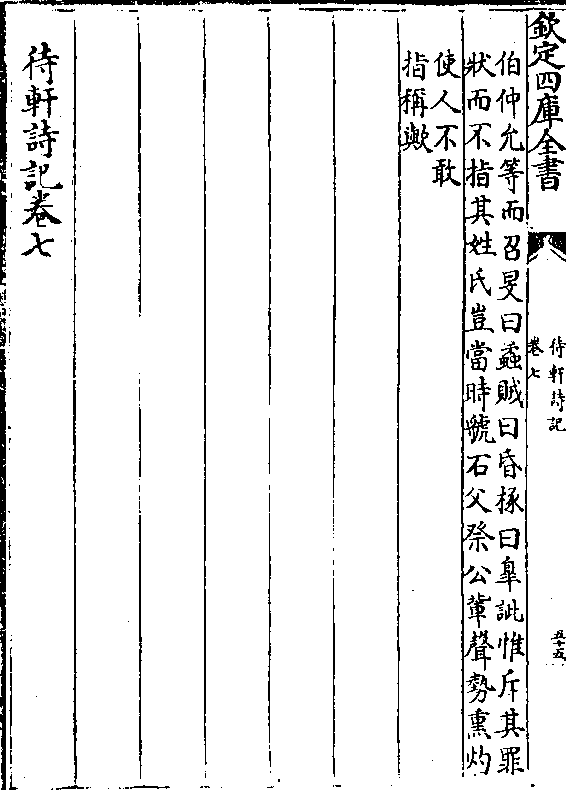 欽定四庫全書
待軒詩記
卷七
五十五
伯仲允等而召旻曰蟊賊曰昏椓曰臯訿惟斥其罪
狀而不指其姓氏豈當時虢石父祭公輩聲勢熏灼
使人不敢
指稱歟
待軒詩記卷七